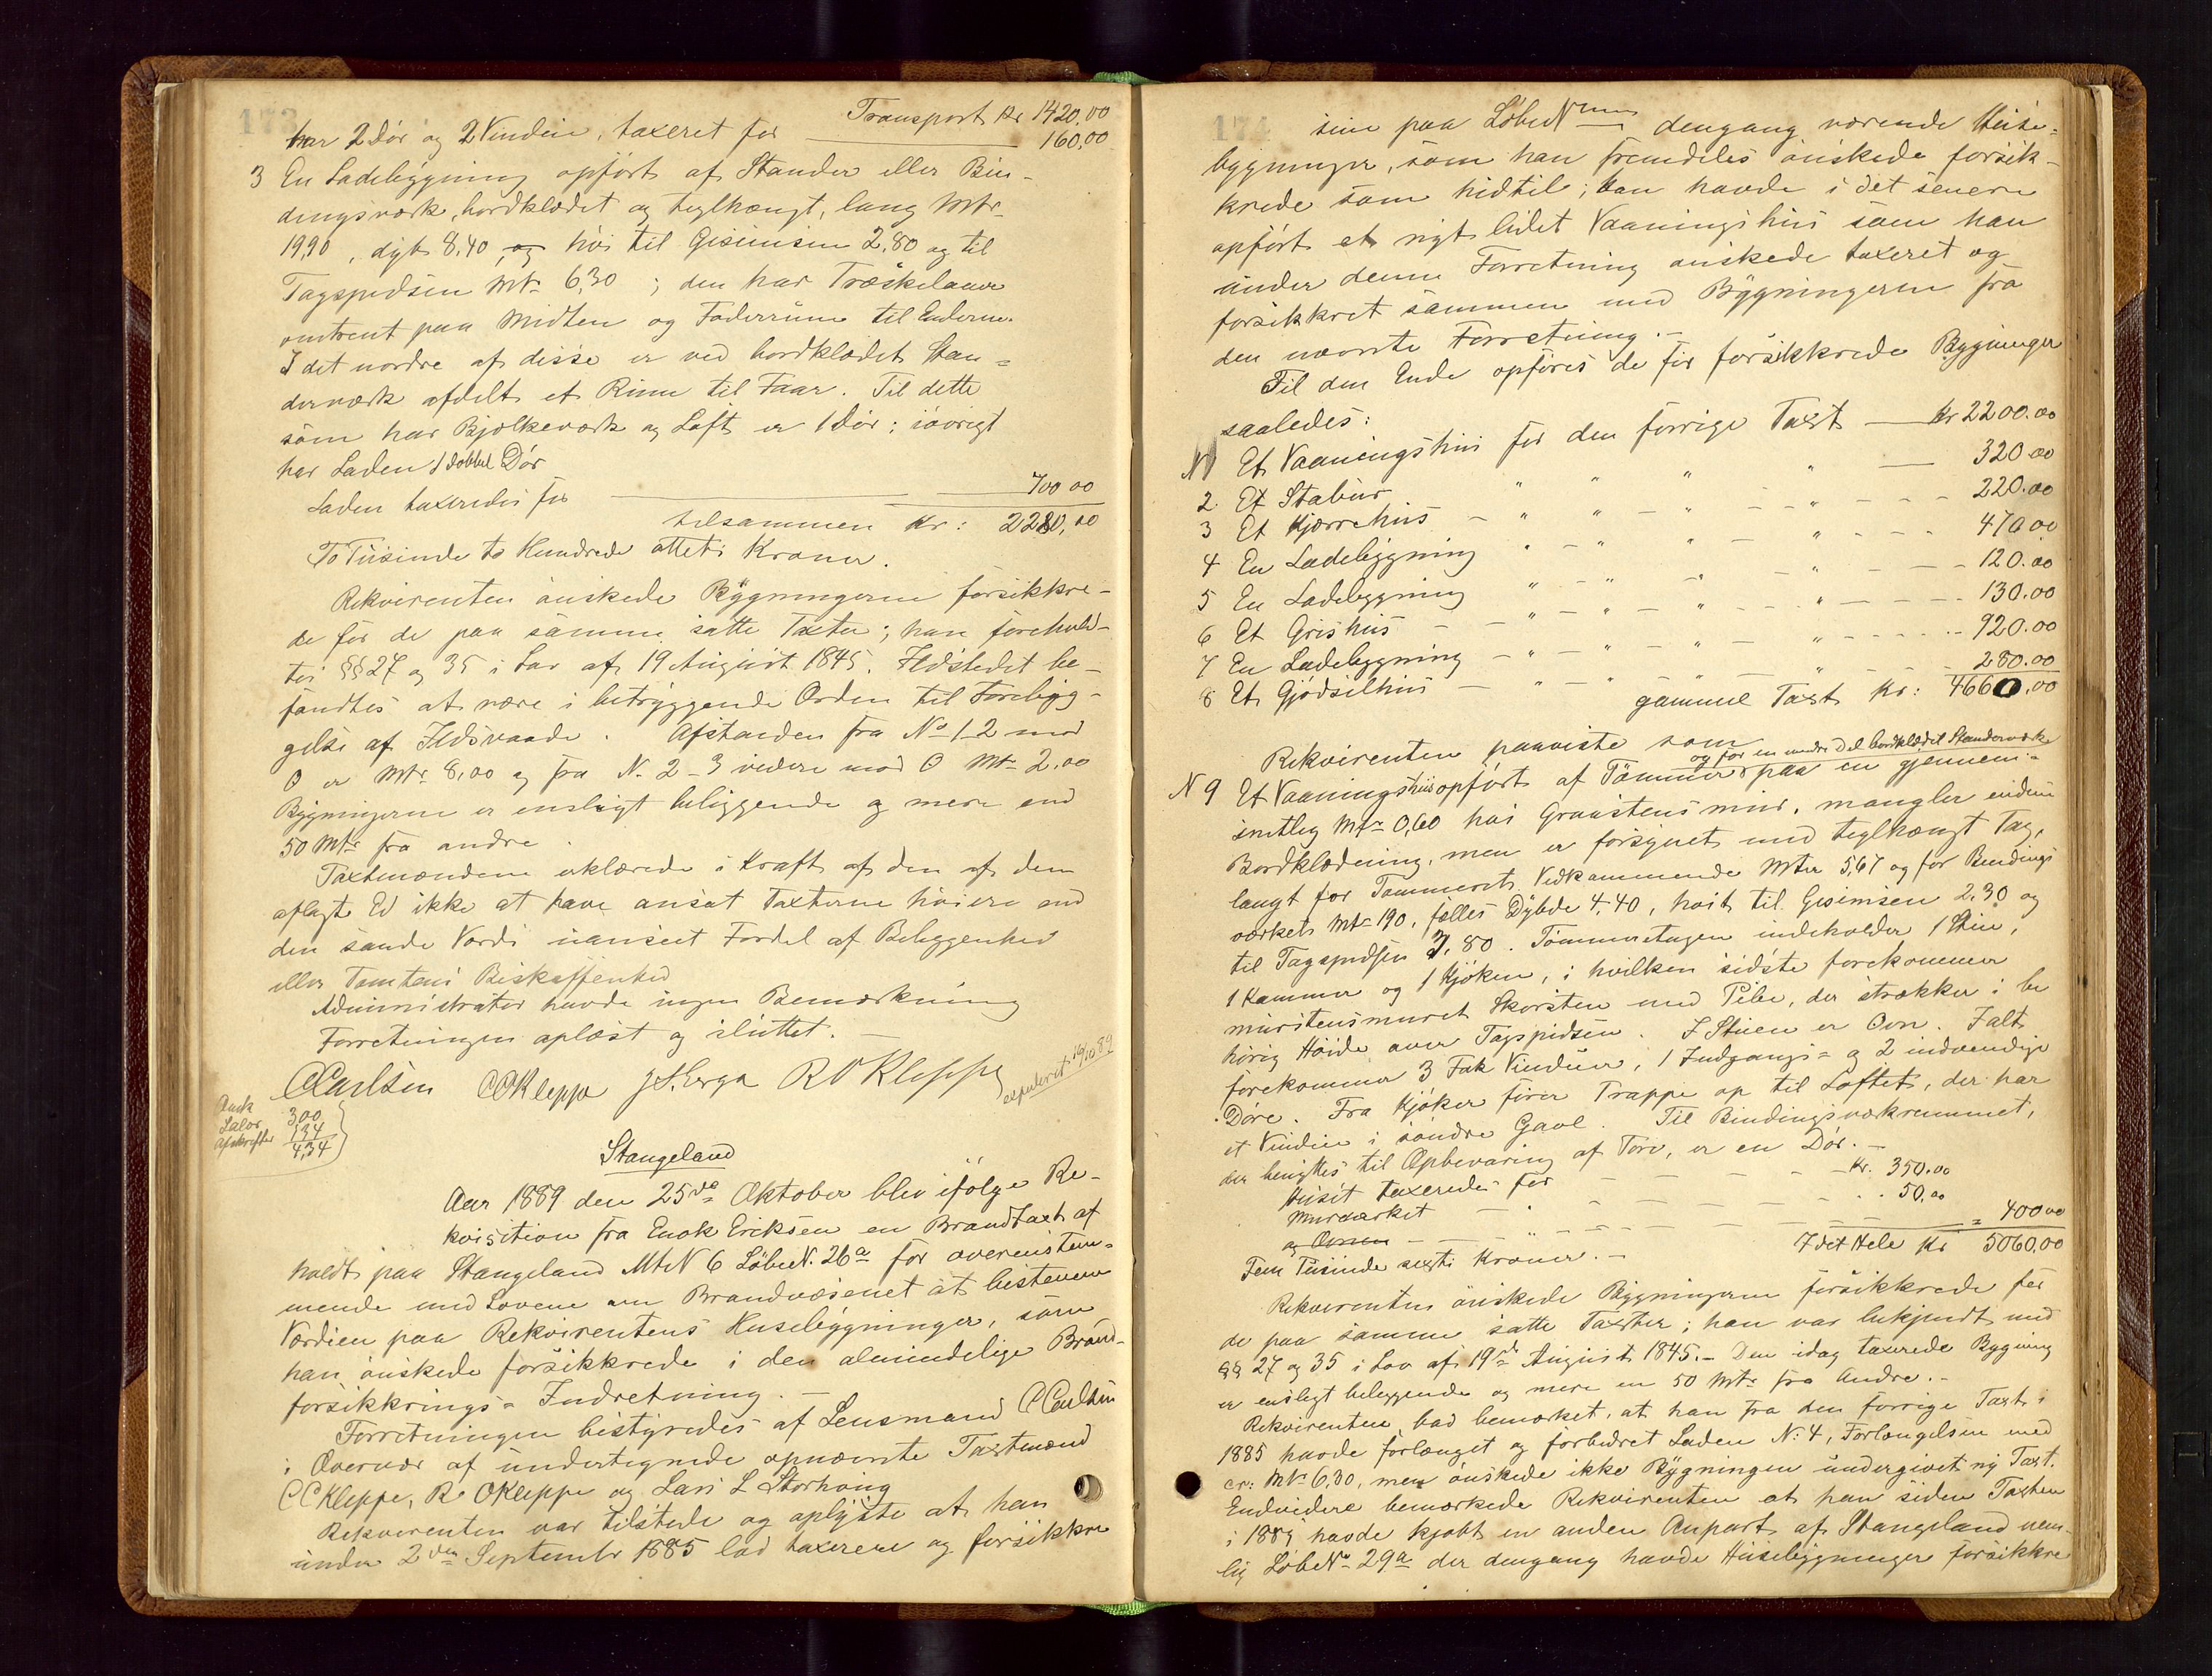 173
Transport Kr 1420,00
har 2 Dör og 2 Vinduer, taxeret for 160,00
3 En Ladebygning opfört af Stander eller Bin-
dingsværk, bordklædet og teglhængt, lang Mtr
19,90, dyb 8,40, og höi til Gesimsen 2,80 og til
Tagspidsen Mtr 6,30; den har Træskelaave
omtrent paa Midten og Foderrum til Enderne.
I det nordre af disse er ved bordklædet Stan-
derværk afdelt et Rum til Faar. Til dette
som har Bjælkeværk og Loft er 1 Dör; iövrigt
har Laden 1 dobbel Dör
Laden taxeredes for 700 00
tilsammen Kr: 2280,00
To Tusinde to Hundrede otteti Kroner.
Rekvirenten önskede Bygningerne forsikkre-
de for de paa samme satte Taxter; han foreholdt-
tes §§ 27 og 35 i Lov af 19 August 1845. Ildstedet be-
fandtes at være i betryggende Orden til Forebyg-
gelse af Ildsvaade. Afstanden fra No 1-2 mod
O er Mtr. 8,00 og fra N. 2-3 videre mod O Mtr 2,00
Bygningerne er ensligt beliggende og mere end
50 Mtr fra andre.
Taxtmændene erklærede i Kraft af den af dem
aflagte Ed ikke at have ansat Taxterne höiere end
den sande Værdi uanseet Fordel af Beliggenhed
eller Tomtens Beskaffenhed
Administrator havde ingen Bemærkning
Forretningen oplæst og sluttet. —
CCarlsen CCKleppe J S. Erga R O Kleppe
expederet 19/10 89
Auk 300
Salær 134
Afskrifter 4,34
Stangeland
Aar 1889 den 25de Oktober blev ifölge Re-
kvisition fra Enok Eriksen en Brandtaxt af
holdt paa Stangeland MtN 6 LöbeN. 26a for overenstem-
mende med Lovene om Brandvæsenet at bestemme
Værdien paa Rekvirentens Husebygninger, som
han önskede forsikkrede i den almindelige Brand-
forsikkrings-Indretning. —
Forretningen bestyredes af Lensmand C Carlsen
i Overvær af undertegnede opnævnte Taxtmænd
C C Kleppe, R. O Kleppe og Lars L Storhoug
Rekvirenten var tilstede og oplyste at han
under 2den September 1885 lod taxere og forsikkre
174
sine paa LöbeNrum dengang værende Huse-
bygninger, som han fremdeles önskede forsik-
krede som hidtil; han havde i det senere
opfört et nyt lidet Vaaningshus som han
under denne Forretning önskede taxeret og
forsikkret sammen med Bygningerne fra
den nævnte Forretning. —
Til den Ende opföres de för forsikkrede Bygninger
saaledes:
N 1 Et Vaaningshus for den forrige Taxt Kr 2200.00
2 Et Stabur " " " " 320.00
3 Et Kjærrehus " " " " 220.00
4 En Ladebygning " " " " 470 00
5 En Ladebygning " " " " 120.00
6 Et Grishus " " " " 130.00
7 En Ladebygning " " " " 920.00
8 Et Gjödselhus " " " " 280.00
gammel Taxt Kr: 4660,00
Rekvirenten paaviste som
og for en mindre Del bordklædet Standerværk
N 9 Et Vaaningshus opfört af Tömmer paa en gjennem-
snitlig Mtr 0,60 höi Graastensmur, mangler endnu
Bordklædning, men er forsynet med teglhængt Tag,
langt for Tömmerets Vedkommende Mtr 5,67 og for Bindings
værkets Mtr 190, fælles Dybde 4,40, höit til Gesimsen 2,30 og
til Tagspidsen 3,80. Tömmeretagen indeholder 1 Stue,
1 Kammer og 1 Kjöken, i hvilken sidste forekommer
murstensmuret Skorsten med Pibe, der strækker i be
hörig Höide over Tagspidsen. I Stuen er Ovn. Ialt
forekommer 3 Fak Vinduer, 1 Indgangs- og 2 indvendige
Döre. Fra Kjöken förer Trappe op til Loftet, der har
et Vindue i söndre Gavl. Til Bindingsværkrummet,
der benyttes til Opbevaring af Torv, er en Dör. —
Huset taxeredes for Kr. 350.00
Murværket 50,00
og Ovnen = 400 00
I det Hele Kr 5060,00
Fem Tusinde sexti Kroner. —
Rekvirenten önskede Bygningerne forsikkrede for
de paa samme satte Taxter; han var bekjendt med
§§ 27 og 35 i Lov af 19de August 1845. — Den idag taxerede Bygning
er ensligt beliggende og mere en 50 Mtr fra Andre. —
Rekvirenten bad bemærket, at han fra den forrige Taxt i
1885 havde forlænget og forbedret Laden N: 4, Forlængelsen med
cr: Mtr 6,30, men önskede ikke Bygningen undergivet ny Taxt.
Endvidere bemærkede Rekvirenten at han siden Taxten
i 1889 havde kjöbt en anden Anpart af Stangeland nem-
lig LöbeNo 29a der dengang havde Husebygninger forsikkre